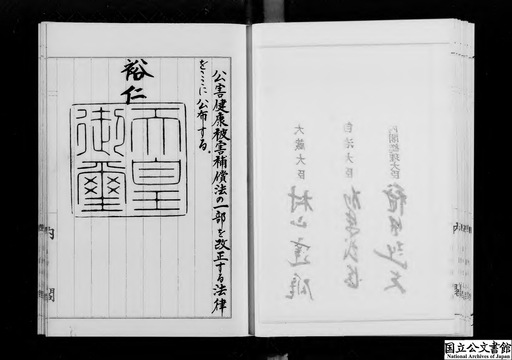 公害健康被害補償法の一部を改正する法律
をここに公布する。
裕仁
天皇
御璽
内閣
内閣総理大臣
福田赳夫
自治大臣
大蔵大臣
村山達雄
国立公文書館
National Archives of Japan